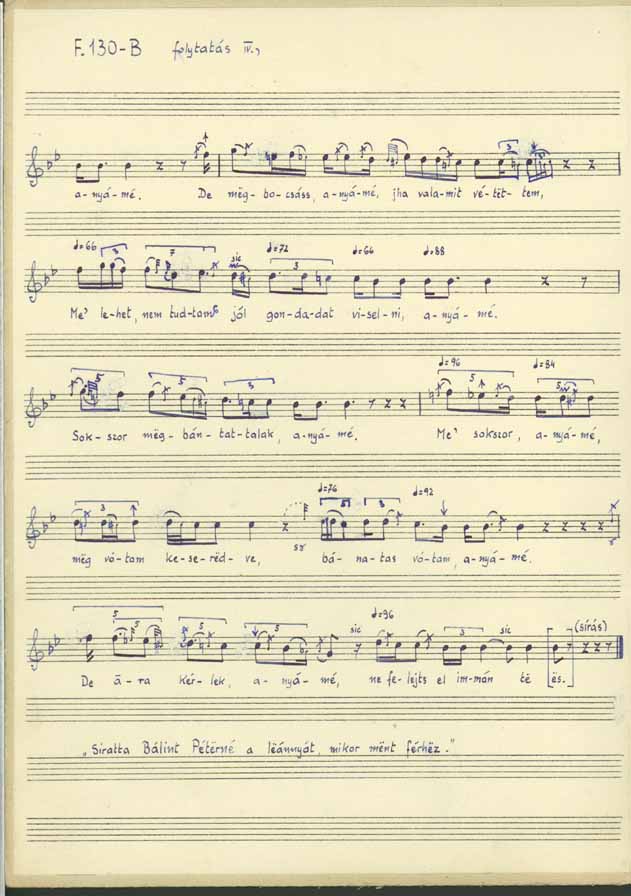 F.130-B folytatás IV.,
3
a-nyá-mé. De mëg-bo-csáss, a-nyá-mé, jha vala-mit vé-tët-tem,
♩=66 3 7 sic ♩=72 3 ♩=66 ♩=88
Me' le-het, nem tud-tam jól gon-da-dat vi-sel-ni, a-nyá-mé.
5 5 3 ♩=96 5 ♩=84 5
Sok-szor mëg-bán-tat-talak, a-nyá-mé. Me' sokszor, a-nyá-mé,
3 ♩=76 5 3 ♩=92
mëg vó-tam ke-se-rëd-ve, sz bá-na-tas vó-tam, a-nyá-mé.
5 5 5 5 sic ♩=96 3 sic (sírás)
De ā-ra kér-lek, a-nyá-mé, ne fe-lejts el im-mán të ës.
„Siratta Bálint Pétërné a lëánnyát, mikor mënt férhëz."